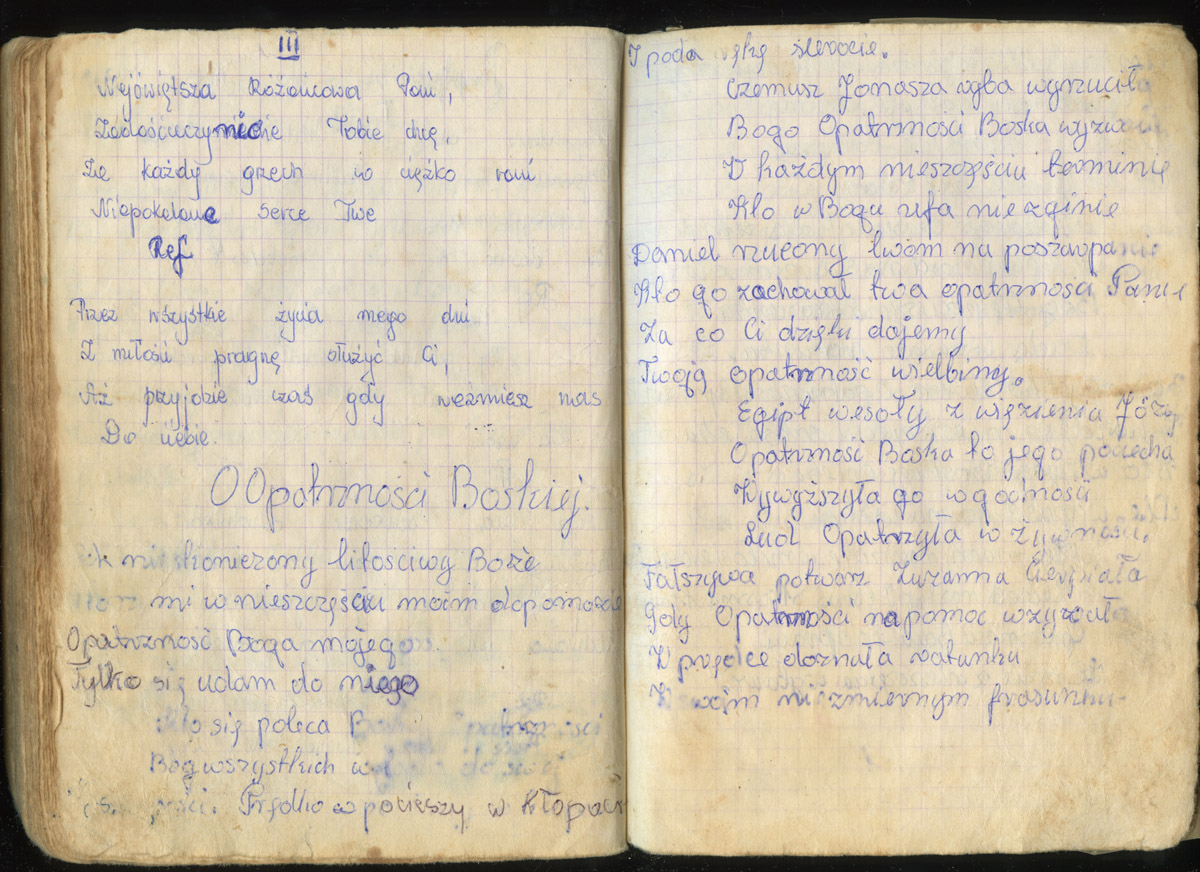 III
Nejświętsza Różańcowa Pani,
Zadośćuczynienie Tobie chcę,
Że każdy grzech w ciężko rani
Niepokelane Serce Twe
Ref
Przez wszystkie życia mego dni
Z miłości pragnę służyć Ci,
Aż przyjdzie czas gdy weźmiesz nas
Do ciebie.
O Opatrzności Boskiej.
nieskończony litościwy Boże
mi w nieszczęściu moim dopomoże
Opatrzność Boga mojego
Tylko się udam do niego
się poleca
Bóg wszystkich
Prędko pocieszy w kłopoc
I poda rękę sierocie.
Czemusz Jonasza ryba wyrzuciła
Bogo Opatrzności Boska
W każdym nieszczęściu terminie
Kto w Bogu ufa nie zginie
Daniel rzucony lwom na poszarpanie
Kto go zachował twa opatrzności Panie
Za co Ci dzięki dajemy
Twoją opatrzność wielbimy.
Egipt wesoły z więzienia Józ
Opatrzność Boska to jego pociecha
Wywyższyła go w godności
Lud Opatrzyła w żywności.
Fałszywa potwarz Zuzanna cierpiała
Gdy Opatrzności na pomoc wzywała
W prędce doznała ratunku
W swoim niezmiernym frasunku